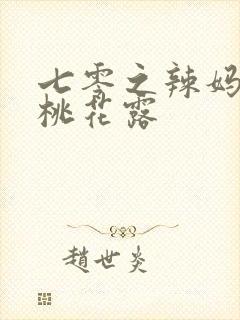 七零之辣妈
桃花露
趙世炎